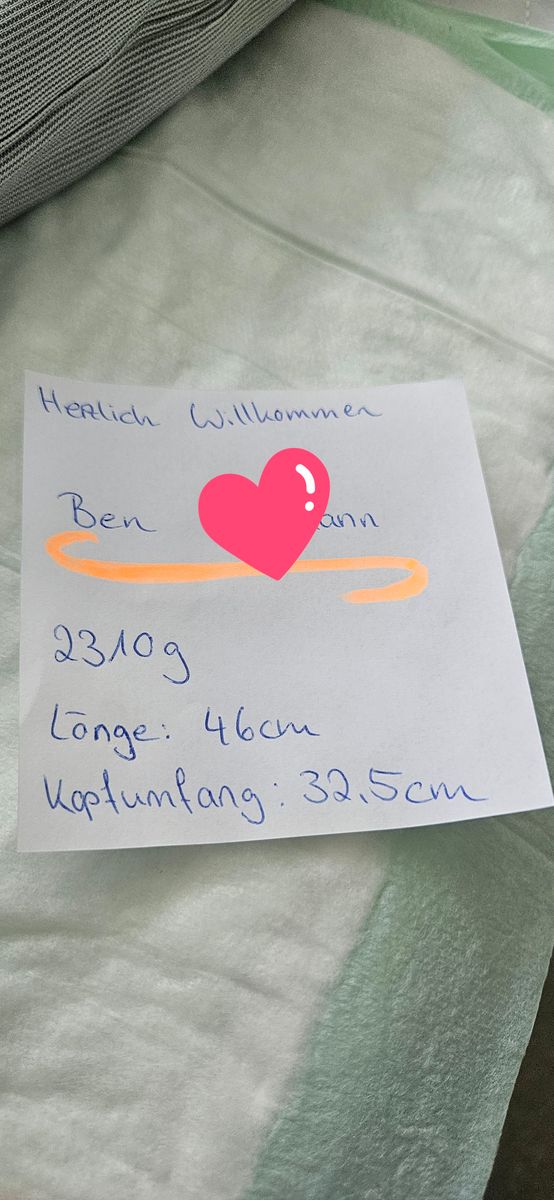 Herzlich Willkommen
Ben ann
2310g
Länge: 46cm
Kopfumfang: 32,5cm